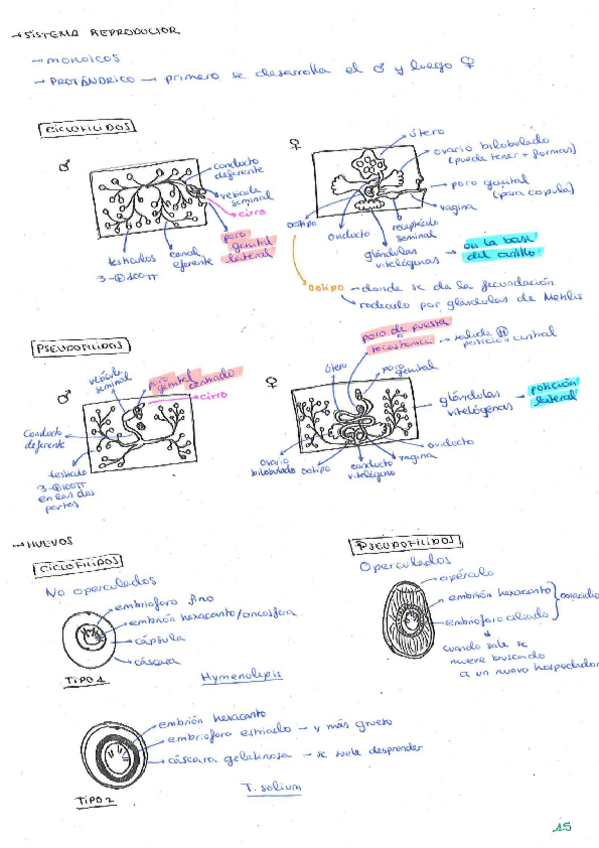 → SISTEMA REPRODUCTOR
→ MONOICOS
→ PROTÁNDRICO → primero se desarrolla el ♂ y luego ♀
CICLOFILIDOS
♂
conducto
deferente
vesícula
seminal
cirro
poro
genital
lateral
testículos
3-⊕100TT
canal
eferente
♀
útero
ovario bilobulado
(puede tener ≠ formas)
poro genital
(para copula)
vagina
ootipo
oviducto
receptáculo
seminal
glándulas
vitelógenas → en la base
del anillo
ootipo → donde se da la fecundación
rodeado por glándulas de Mehlis
PSEUDOFILIDOS
♂
vesícula
seminal
poro
genital centrado
cirro
conducto
deferente
testículo
3-⊕100TT
en las dos
partes
♀
poro de puesta
tocostoma → salida H
posición central
útero
poro
genital
glándulas
vitelógenas → posición
lateral
oviducto
vagina
conducto
vitelógeno
ootipo
ovario
bilobulado
→ HUEVOS
CICLOFILIDOS
No operculados
embrioforo fino
embrión hexacanto/oncosfera
cápsula
cáscara
TIPO 1
Hymenolepis
embrión hexacanto
embrioforo estriado → y más grueso
cáscara gelatinosa → se suele desprender
TIPO 2
T. solium
PSEUDOFILIDOS
Operculados
opérculo
embrión hexacanto
embrioforo ciliado
coracidio
cuando sale se
mueve buscado
a un nuevo hospedador
15